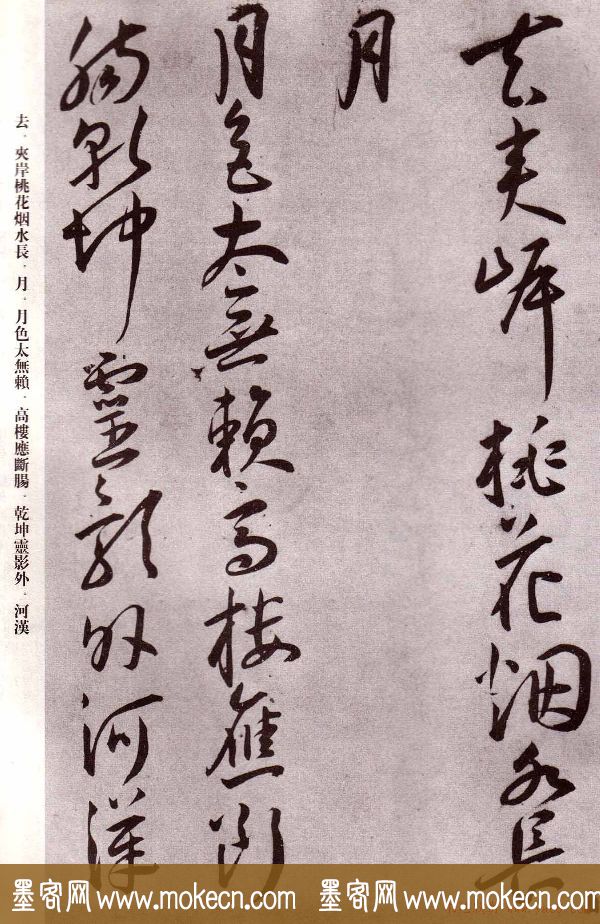 去夾岸桃花烟水長
月
月色太無賴高樓應斷
腸乾坤靈影外河漢
去．夾岸桃花烟水長．月．月色太無賴．高樓應斷腸．乾坤靈影外．河漢
墨客网 www.mokecn.com 墨客网 www.mokecn.com